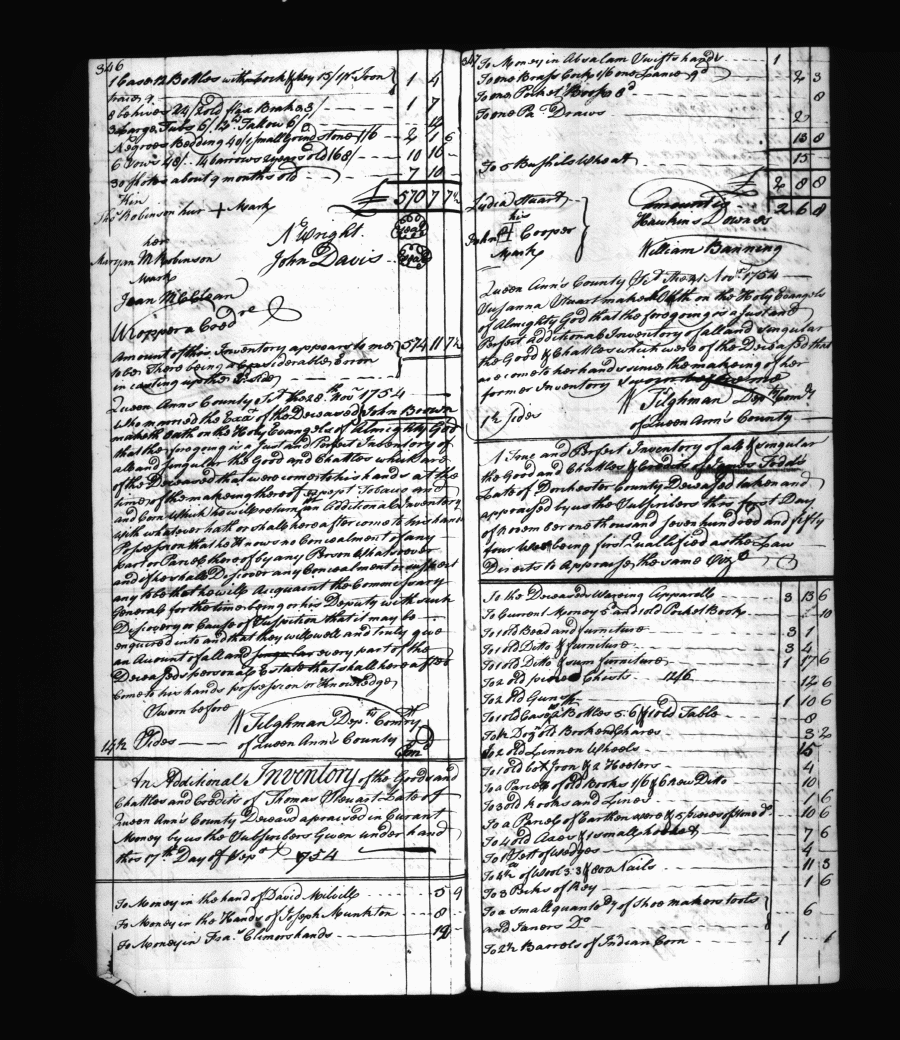 346
1 Case 12 Bottles with lock & key 15/ 1 pr Iron 1 4
traces 9/
8 behives 24/ 2 old flax Brakes 3/ 1 7
3 Large Tubs 6/ 12 lb Tallow 6/ 12
Negroes Bedding 40/ 1 small Grind stone 1/6 2 1 6
6 Sows 48/ 14 barrows 2 years old 168/ 10 16
30 shotes about 9 months old 7 10
Kin £ 570 7 7½
Robinson hur + Mark
her
Maryan M Robinson
Mark
Jean McClean
N Wright Seal
John Davis Seal
Cred re
Amount of this Inventory appears to me 574 11 7½
to be There being a considerable Error
in casting up the Inside
Queen Ann's County Sct the 28th Novr 1754
Who married the Exx of the Deceased John Brown
maketh Oath on the Holy Evangels of Almighty God
that the foregoing is a Just and Perfect Inventory of
all and singular the Good and Chattles which are
of the Deceased that were come to his hands at the
time of the makeing thereof Except Tobaco and
and Corn which he will return an Additional Inventory
with whatever hath or shall hereafter come to his hand
Possession that he Knows no Concealment of any
part or Parcel thereof by any Person Whatsoever
and if he shall Discover any Concealment or suspect
any to be that he will Acquaint the Commissary
General for the time being or his Deputy with such
Discovery or Cause of Suspicion that it may be
enquired into and that they will well and truly give
an Account of all and singular every part of the
Deceaseds personal Estate that shall hereafter
Come to his hands possession or Knowledge
Sworn before
W Tilghman Dep ty Comry
14½ Sides of Queen Ann's County
An Additional Inventory of the Goods and
Chattles and Credits of Thomas Stewart Late of
Queen Ann's County Deceasd appraised in Curant
Money by us the Subscribers Given under hand
this 17th Day of Sep 1754
To Money in the hand of David Melvill 5 9
To Money in the Hands of Joseph Munkton 8
To Money in Isa Climor hands 12
347
To Money in Absalam Swifts hands 1
To one Brass Cock 1/6 one Lance 9d 2 3
To one Pocket Book 8d 8
To one Pa Drawes 2
13 8
To 5 Bushels Wheat 15
£ 2 8 8
2 6 8
Lydia Stuart
his
John A Cooper
Mark
Hawkins Downes
William Banning
Queen Ann's County Sct The Novr 1754
Susanna Stuart maketh Oth on the Holy Evangels
of Almighty God that the foregoing is a Just and
Perfect Additional Inventory of all and singular
the Good & Chattles which were of the Deceased that
are come to her hands since the makeing of her
former Inventory Sworn before me
W Tilghman Dep ty Comry
1½ Sides of Queen Ann's County
A True and Perfect Inventory of all & singular
the Good and Chattles & Credits of James Todd
Late of Dorchester County Deceased taken and
appraised by us the Subscribers this first Day
of November one thousand seven hundred and fifty
four We being first quallified as the Law
Directs to Appraise the same
To the Deceaseds Wareing Apparrell 3 13 6
To Current Money 5d and 1 old Pocket Book 10
To 1 old Bead and furniture 3 1
To 1 old Ditto & furniture 3 4
To 1 old Ditto & sum furniture 1 17 6
To 2 old pine Chests 12/6 12 6
To 2 old Guns 1 10 6
To 1 old Case 2 Bottles 5.6 & 1 old Table 8
To ½ Dozn old Book and Chares 3 2
To 2 old Linnen Wheels 15
To 1 old box Iron & 2 Heeters 4
To a Parcel of old Books 1/6 & 6 new Ditto 10
To 3 old hooks and Lines 1 6
To a Parcel of Earthen ware & 5 pieces of 10 6
To 4 old Axes & 1 small 7 6
To 1 Sett of Wedges 4
To 4 lb of Wool 3.3 & 800 Nails 11 3
To 3 Pecks of Rey 1 6
To a small quante ty of Shoe makers tools 6
and Taners Do
To 2½ Barrels of Indian Corn 1 1